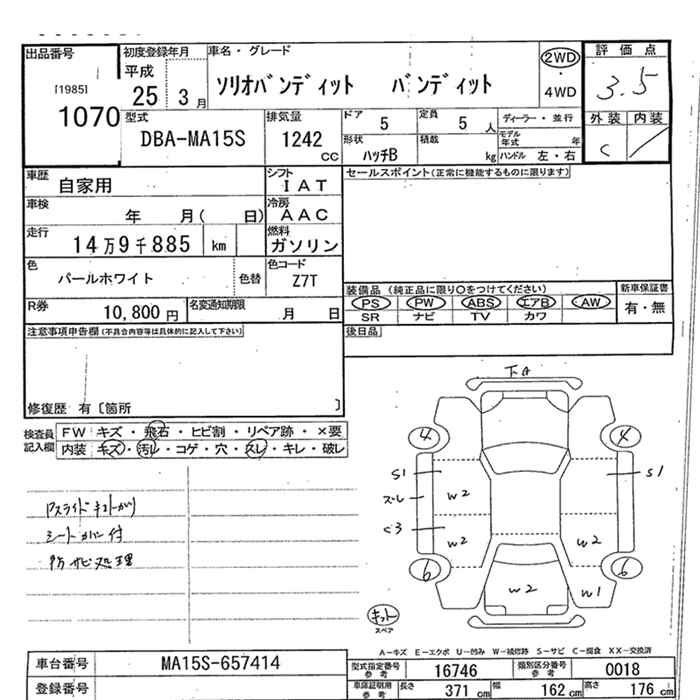 出品番号
[1985]
1070
初度登録年月
平成
25 3月
車名・グレード
ソリオバンディット バンディット
2WD
・
4WD
評価点
3.5
外装 内装
C
型式
DBA-MA15S
排気量
1242
CC
ドア 5
定員 5人
形状
ハッチB
積載
kg
ディーラー・並行
モデル年式 年
ハンドル 左・右
車歴
自家用
シフト
IAT
車検
年 月( 日)
冷房
AAC
走行
14万9千885 km
燃料
ガソリン
色
パールホワイト
色替
色コード
Z7T
R券
10,800円
名変通知期限
月 日
セールスポイント(正常に機能するものに限ります)
装備品(純正品に限り○をつけてください)
PS PW ABS エアB AW
SR ナビ TV カワ
新車保証書
有・無
後日品
注意事項申告欄(不具合内容等は具体的に記入して下さい)
修復歴 有〔箇所 〕
検査員
記入欄
FW キズ・飛石・ヒビ割・リペア跡・×要
内装 キズ・汚レ・コゲ・穴・スレ・キレ・破レ
シートカバー付
防サビ処理
下A
4 4
S1 S1
スレ W2
C3 W2 W2
6 6
W2 W1
キット
スペア
A-キズ E-エクボ U-凹み W-補修跡 S-サビ C-腐食 XX-交換済
車台番号
MA15S-657414
登録番号
型式指定番号
参考
16746
類別区分番号
参考
0018
車庫証明用
参考
長さ 371 cm
幅 162 cm
高さ 176 cm